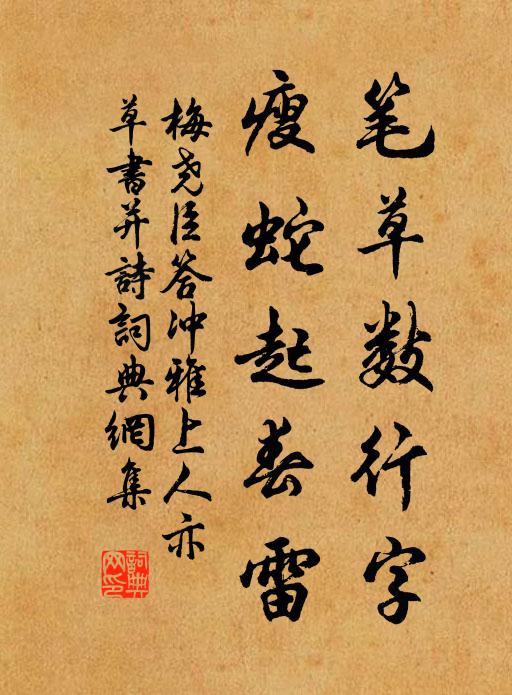 笔草数行字
瘦蛇起春雷
梅尧臣答冲雅上人亦
草書并詩詞典網集
詞典网印